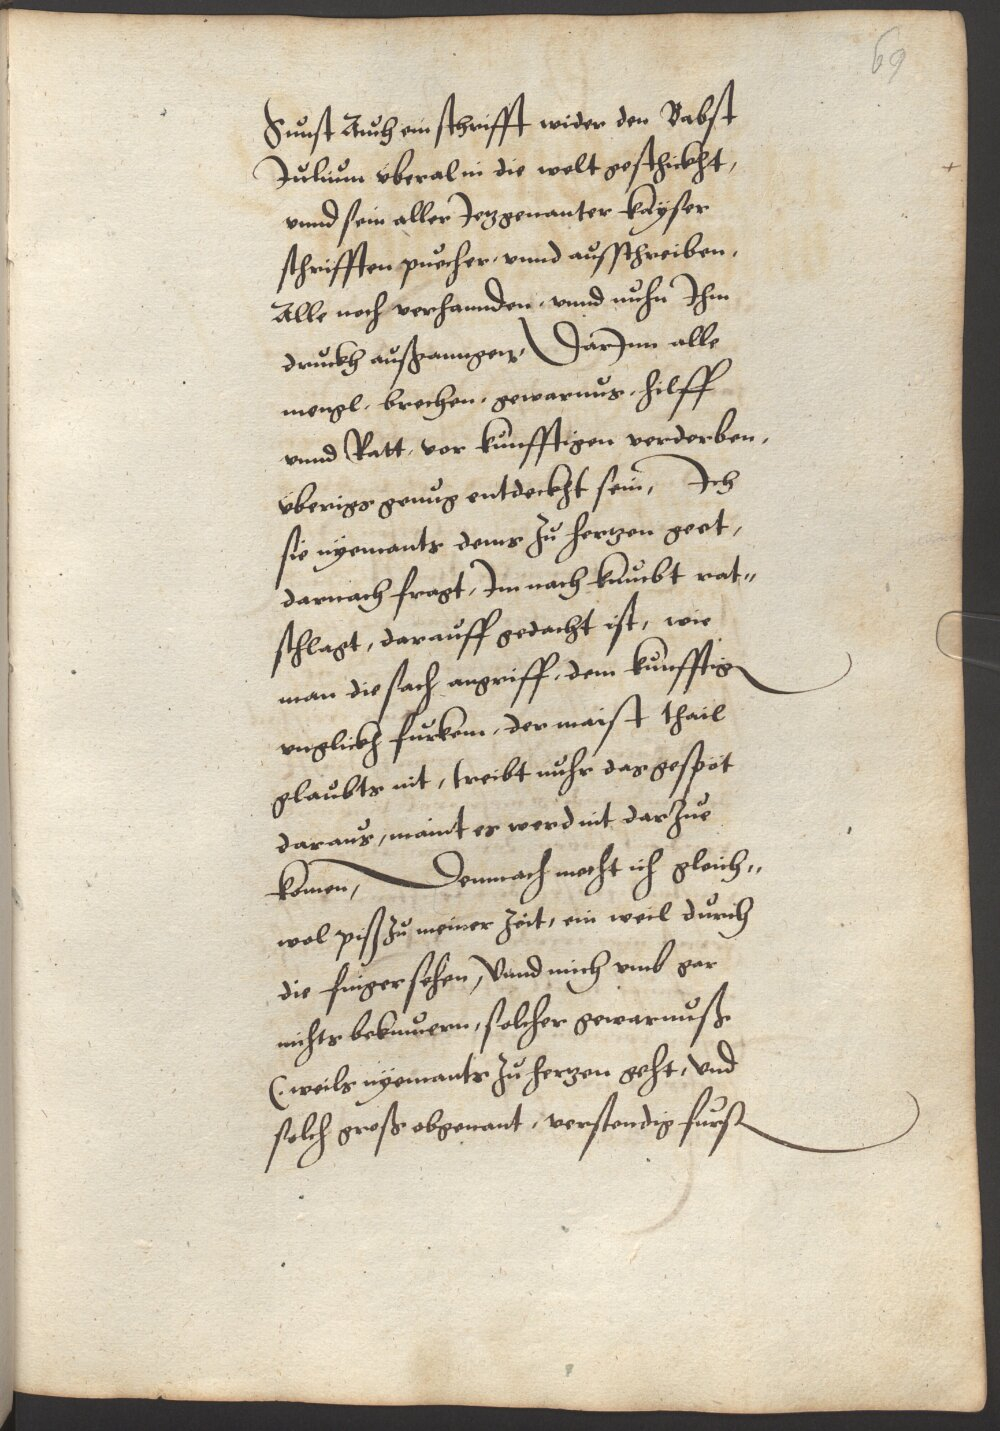 69
Sunst Auch ein schrifft wider den Babst
Julium vberal in die welt geschickht,
vnnd sein aller Jezgenanter kayser
schrifften puecher, vnnd ausschreiben,
Alle noch verhannden, vnnd nuhn Jhm
druckh außganngen, DarJnn alle
mengl, brechen, gewarnus, hilff
vnnd Ratt, vor kunfftigen verderben,
vberigs genug entdeckht sein, Ich
sie nyemants dems zu hertzen geet,
darnach fragt, Jm nach knucbt rat„
schlagt, darauff gedacht ist, wie
man die sach angriff, dem kunfftig
vnglickh furkem, der maist thail
glaubts nit, treibt nuhr das gespöt
daraus, maint es werd nit darzue
komen, Demnach mecht ich gleich„
wol piß zu meiner zeit, ein weil durch
die finger sehen, Vnnd mich vmb gar
nichts bekumern, solcher gewarnuß
(. weils nyemants zu hertzen geht, Vnd
solch groß obgenant, verstendig furst